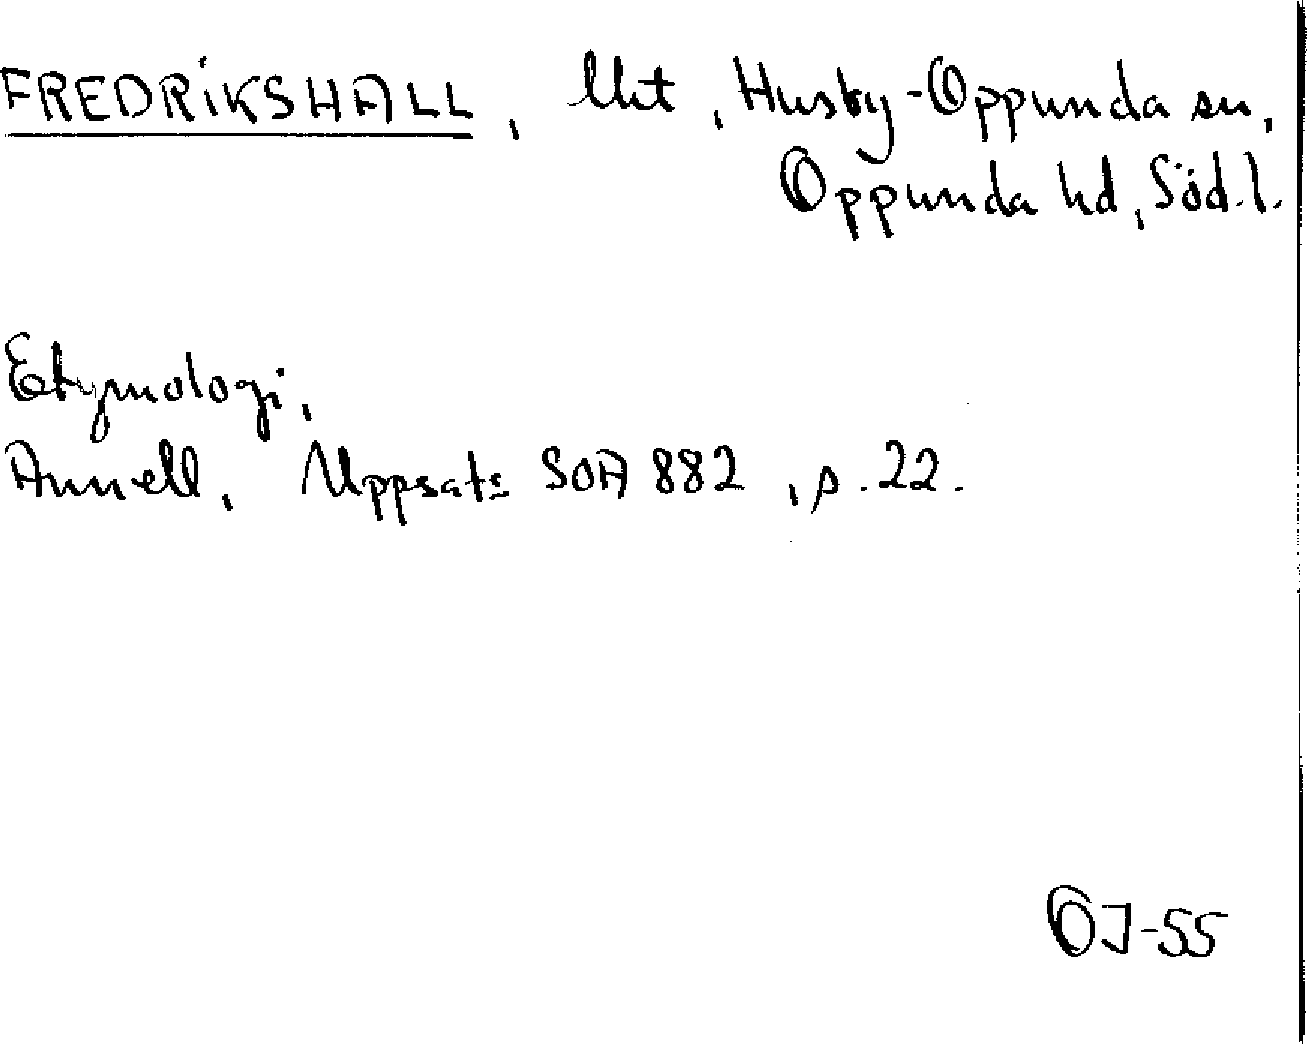 FREDRIKSHALL, lht, Husby-Oppunda sn,
Oppunda hd, Söd.l.
Etymologi,
Annell, Uppsats SOA 882, s. 22.
OJ-55